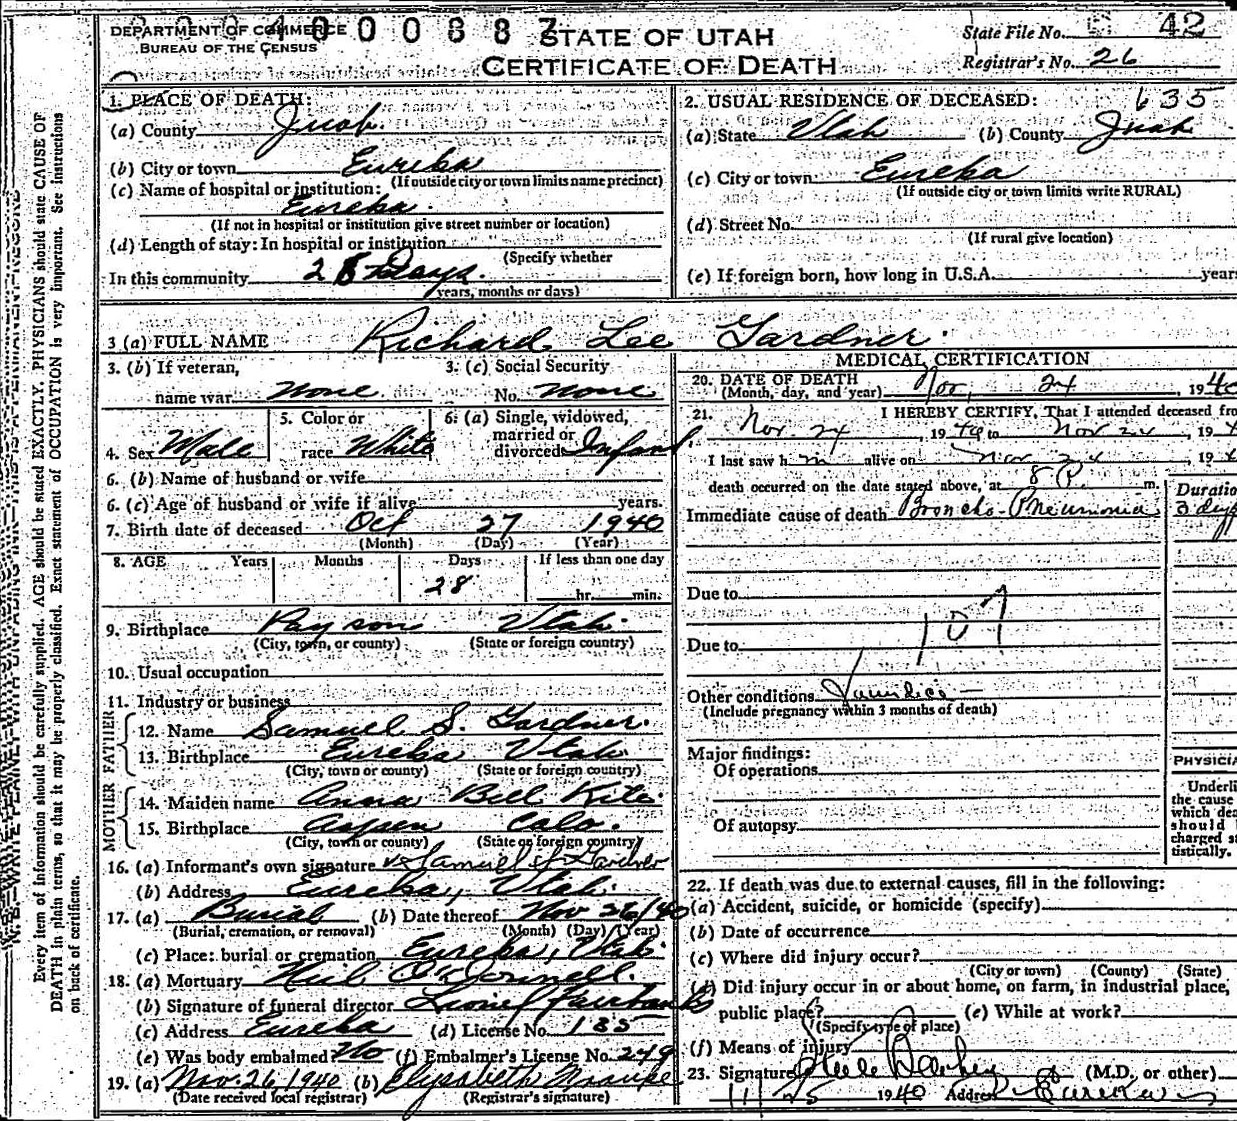 DEPARTMENT OF COMMERCE
BUREAU OF THE CENSUS
STATE OF UTAH
CERTIFICATE OF DEATH
State File No. 42
Registrar's No. 26
1. PLACE OF DEATH:
(a) County Juab
(b) City or town Eureka
(If outside city or town limits name precinct)
(c) Name of hospital or institution:
Eureka
(If not in hospital or institution give street number or location)
(d) Length of stay: In hospital or institution
(Specify whether
In this community 28 Days
years, months or days)
2. USUAL RESIDENCE OF DECEASED: 635
(a) State Utah (b) County Juab
(c) City or town: Eureka
(If outside city or town limits write RURAL)
(d) Street No.
(If rural give location)
(e) If foreign born, how long in U.S.A. years
3 (a) FULL NAME Richard Lee Gardner
3. (b) If veteran,
name war none
3. (c) Social Security
No. none
4. Sex Male
5. Color or
race White
6. (a) Single, widowed,
married or
divorced Infant
6. (b) Name of husband or wife
6. (c) Age of husband or wife if alive years.
7. Birth date of deceased Oct 27 1940
(Month) (Day) (Year)
8. AGE Years Months Days If less than one day
28 hr. min.
9. Birthplace Payson Utah
(City, town, or county) (State or foreign country)
10. Usual occupation
11. Industry or business
FATHER
12. Name Samuel S. Gardner
13. Birthplace Eureka Utah
(City, town or county) (State or foreign country)
MOTHER
14. Maiden name Anna Bell Kite
15. Birthplace Aspen Colo.
(City, town or county) (State or foreign country)
16. (a) Informant's own signature Samuel S. Gardner
(b) Address Eureka, Utah
17. (a) Burial (b) Date thereof Nov 26/40
(Burial, cremation, or removal) (Month) (Day) (Year)
(c) Place: burial or cremation Eureka, Utah
18. (a) Mortuary Neil O'Donnell
(b) Signature of funeral director Lionel Fairbanks
(c) Address Eureka (d) License No. 185
(e) Was body embalmed? No (f) Embalmer's License No. 249
19. (a) Nov. 26, 1940 (b) Elyzabeth
(Date received local registrar) (Registrar's signature)
MEDICAL CERTIFICATION
20. DATE OF DEATH
(Month, day, and year) Nov. 24 1940
21. I HEREBY CERTIFY, That I attended deceased from
Nov. 24, 1940 to Nov 24, 194
I last saw h m alive on Nov 24, 194
death occurred on the date stated above, at 8 P. m.
Immediate cause of death Broncho-Pneumonia
Duration
3 days
Due to
107
Due to
Other conditions
(Include pregnancy within 3 months of death)
Major findings:
Of operations
Of autopsy
PHYSICIA
Underli
the cause
which dea
should
charged st
tistically.
22. If death was due to external causes, fill in the following:
(a) Accident, suicide, or homicide (specify)
(b) Date of occurrence
(c) Where did injury occur?
(City or town) (County) (State)
(d) Did injury occur in or about home, on farm, in industrial place,
public place? (e) While at work?
(Specify type of place)
(f) Means of injury
23. Signature (M.D. or other)
11/25 1940 Address Eureka
Every item of information should be carefully supplied. AGE should be stated EXACTLY. PHYSICIANS should state CAUSE OF
DEATH in plain terms, so that it may be properly classified. Exact statement of OCCUPATION is very important. See instructions
on back of certificate.